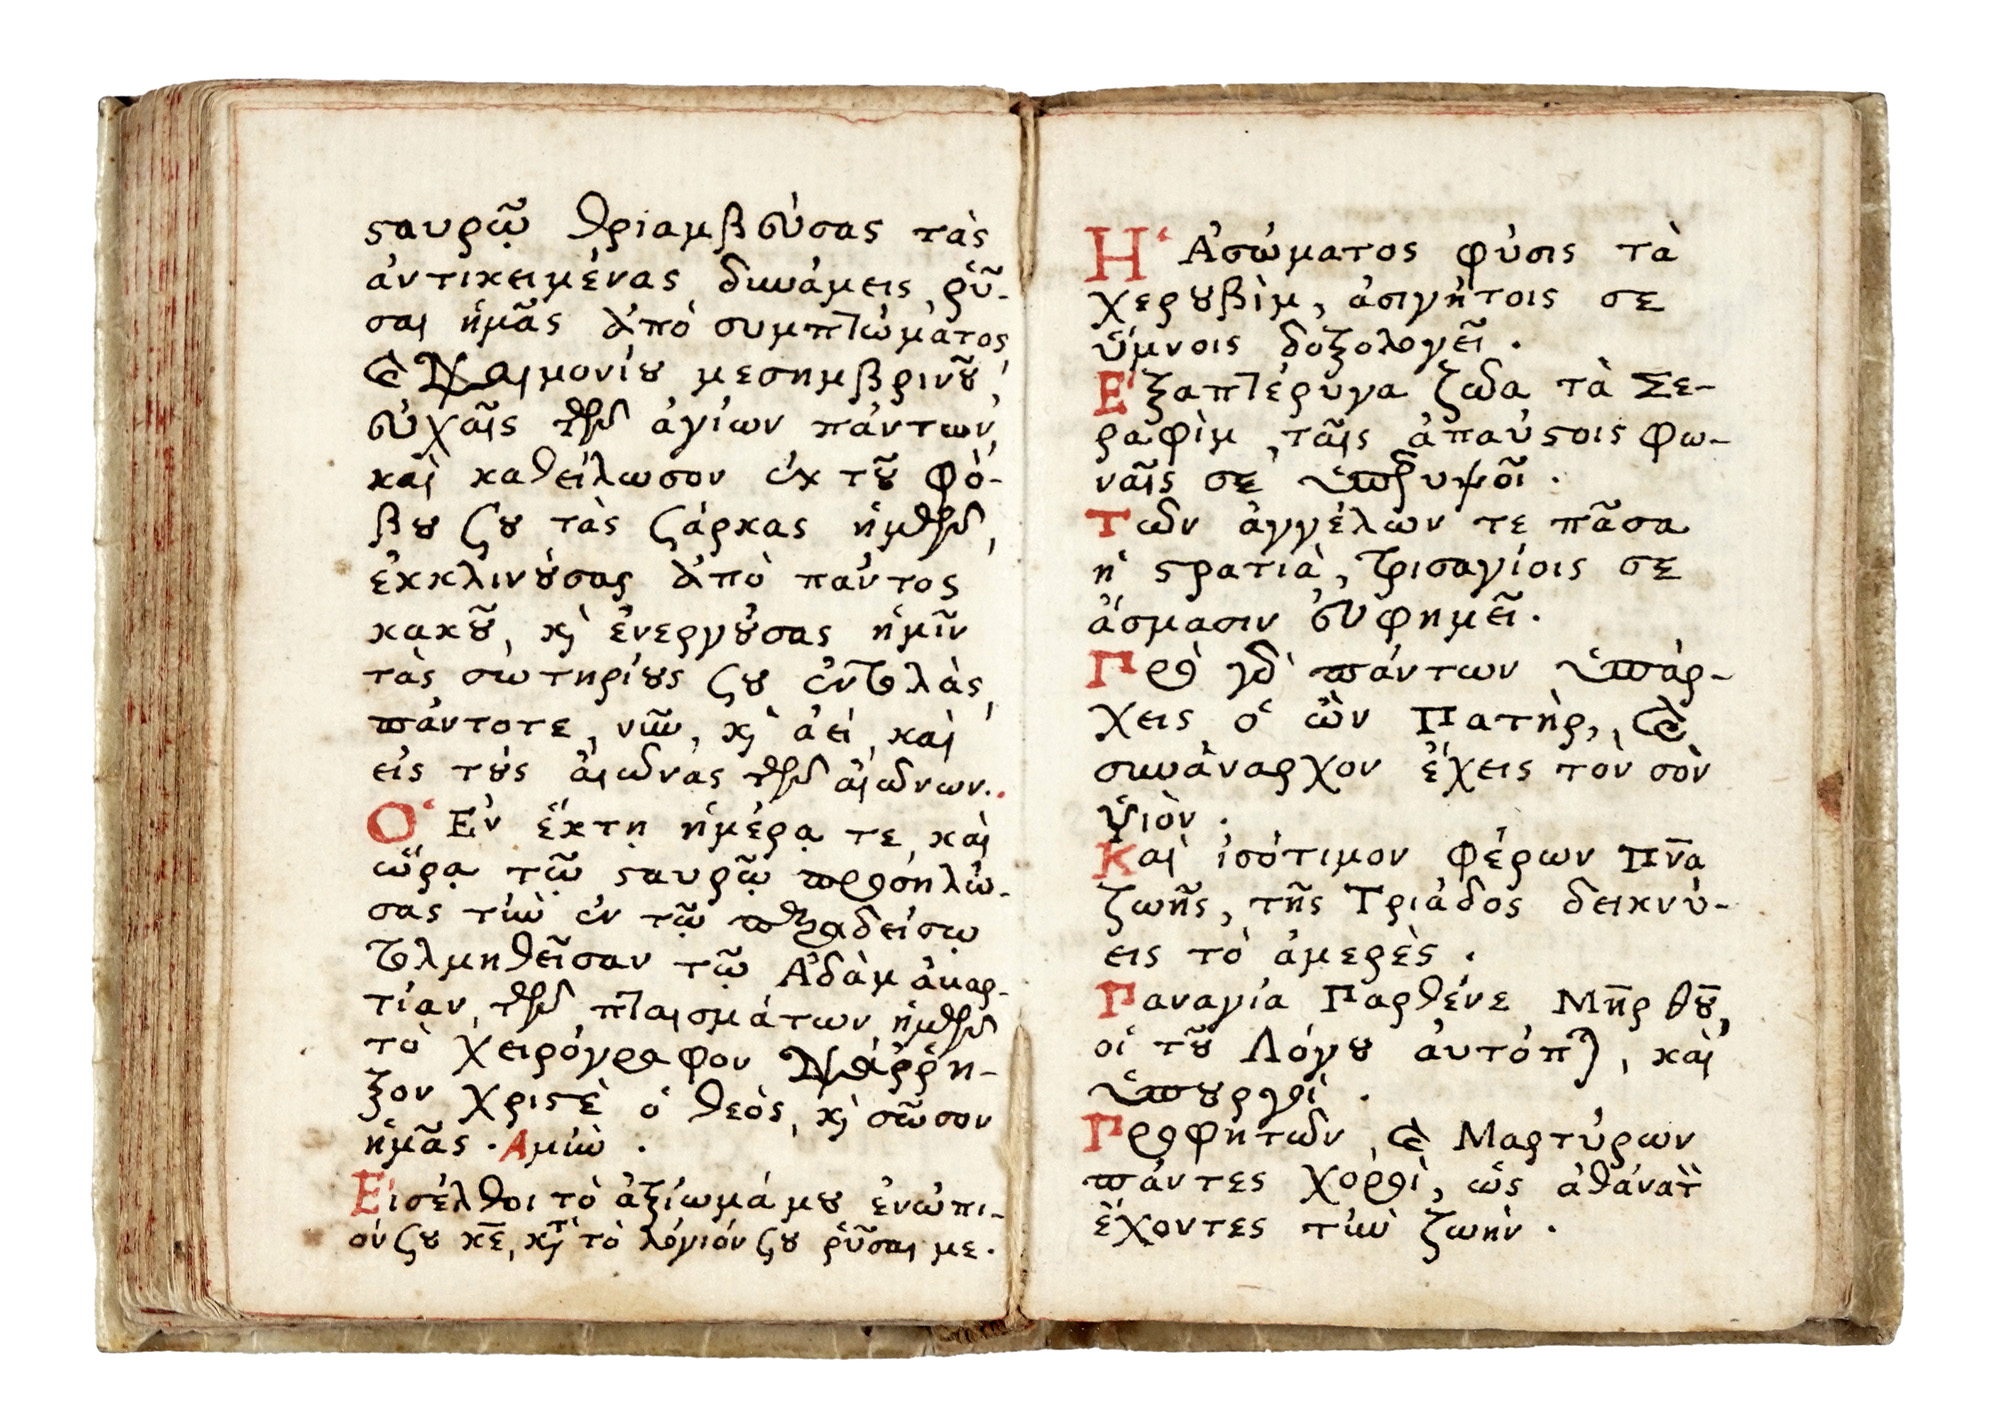 ϛαυρῷ θριαμβεύσας τὰς
ἀντικειμένας δυνάμεις, ῥῦ-
σαι ἡμᾶς ἀπὸ συμπτώματος,
καὶ δαιμονίου μεσημβρινοῦ,
εὐχαῖς τῶν ἁγίων πάντων,
καὶ καθείλωσον ἐκ τοῦ φό-
βου ςου τὰς ςάρκας ἡμῶν,
ἐκκλινούσας ἀπὸ παντὸς
κακοῦ, κὶ ἐνεργούσας ἡμῖν
τὰς σωτηρίους ςου ἐντολὰς,
πάντοτε, νῦν, κὶ ἀεὶ, καὶ
εἰς τοὺς αἰῶνας τῶν αἰώνων..
Ὁ Ἐν ἕκτῃ ἡμέρᾳ τε, καὶ
ὥρᾳ τῷ ϛαυρῷ προσηλώ-
σας τὴν ἐν τῷ παραδείσῳ
τολμηθεῖσαν τῷ Ἀδὰμ ἁμαρ-
τίαν, τῶν πταισμάτων ἡμῶν
τὸ χειρόγραφον διάῤῥη-
ξον Χριϛὲ ὁ θεὸς, κὶ σῶσον
ἡμᾶς. Ἀμὴν.
Εἰσέλθοι τὸ ἀξίωμά μου ἐνώπι-
όν ςου κε̄, κτ̀ τὸ λόγιόν ςου ῥῦσαι με.
Ἡ Ἀσώματος φύσις τὰ
χερουβὶμ, ἀσιγήτοις σε
ὕμνοις δοξολογεῖ.
Ἑξαπτέρυγα ζῶα τὰ Σε-
ραφὶμ, ταῖς ἀπαύϛοις φω-
ναῖς σε ὑπερυψοῖ.
Τῶν ἀγγέλων τε πᾶσα
ἡ ϛρατιὰ, τρισαγίοις σε
ἄσμασιν εὐφημεῖ.
Πρὸ γὰρ πάντων ὑπάρ-
χεις ὁ ὢν Πατὴρ, καὶ
συνάναρχον ἔχεις τὸν σὸν
ὑιὸν.
Καὶ ἰσότιμον φέρων Πν̄α
ζωῆς, τῆς Τριάδος δεικνύ-
εις τὸ ἀμερὲς.
Παναγία Παρθένε Μη̄ρ θῡ,
οἱ τοῦ Λόγου αὐτόπται, καὶ
ὑπουργοὶ.
Προφητῶν, καὶ Μαρτύρων
πάντες χοροὶ, ὡς ἀθάνατ̀
ἔχοντες τὴν ζωήν.